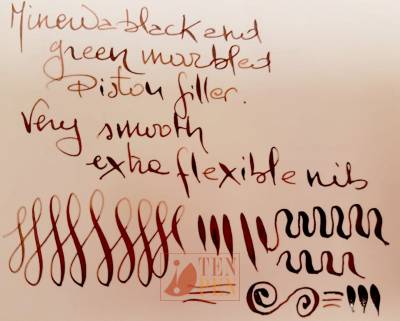 Minerva black and
green marbled
Piston filler.
Very smooth
extra flexible nib
TEN
PEN